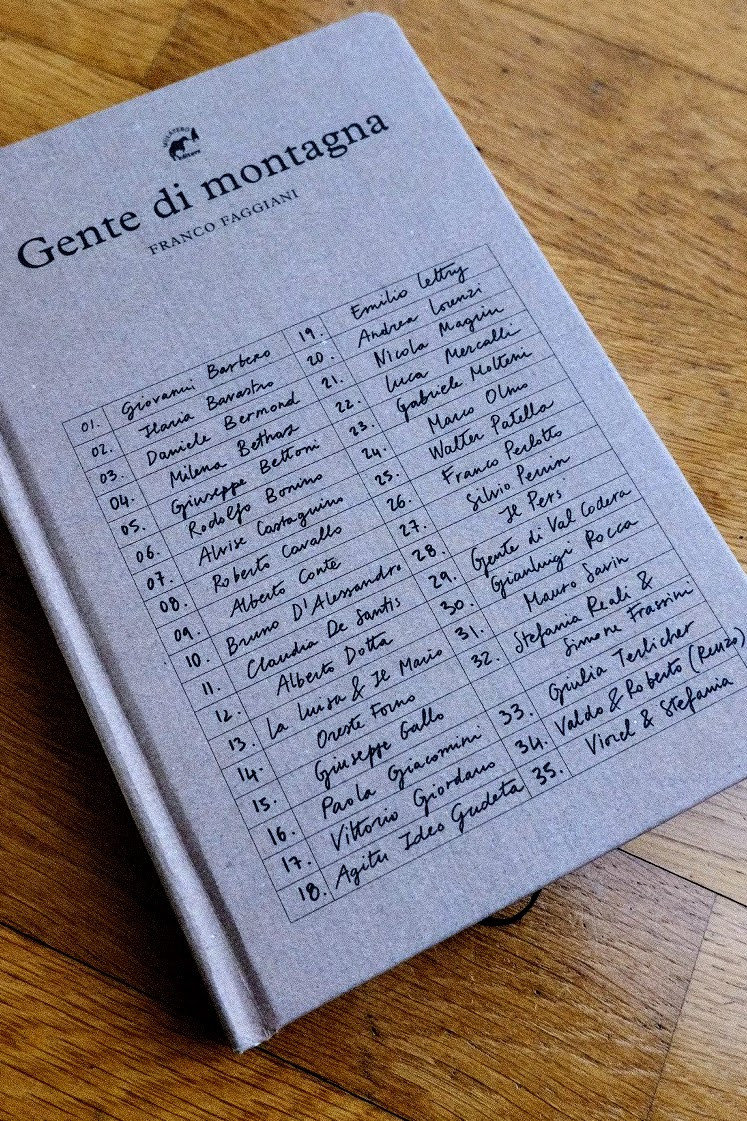 MULATERO
Editore
Gente di montagna
FRANCO FAGGIANI
01. Giovanni Barbero
02. Ilaria Bavastro
03. Daniele Bermond
04. Milena Bethaz
05. Giuseppe Bettoni
06. Rodolfo Bonino
07. Alvise Costaguino
08. Roberto Cavallo
09. Alberto Conte
10. Bruno D'Alessandro
11. Claudia De Santis
12. Alberto Dotta
13. La Luisa & Il Mario
14. Oreste Forno
15. Giuseppe Gallo
16. Paola Giacomini
17. Vittorio Giordano
18. Agitu Ideo Gudeta
19. Emilio Lettry
20. Andrea Lorenzi
21. Nicola Magrin
22. Luca Mercalli
23. Gabriele Molteni
24. Marco Olmo
25. Walter Patella
26. Franco Perlotto
27. Silvio Perrin
28. Il Pers
29. Gente di Val Codera
30. Gianluigi Rocca
31. Mauro Savin
32. Stefania Reali &
Simone Frassini
33. Giulia Terlicher
34. Valdo & Roberto (Renzo)
35. Viorel & Stefania